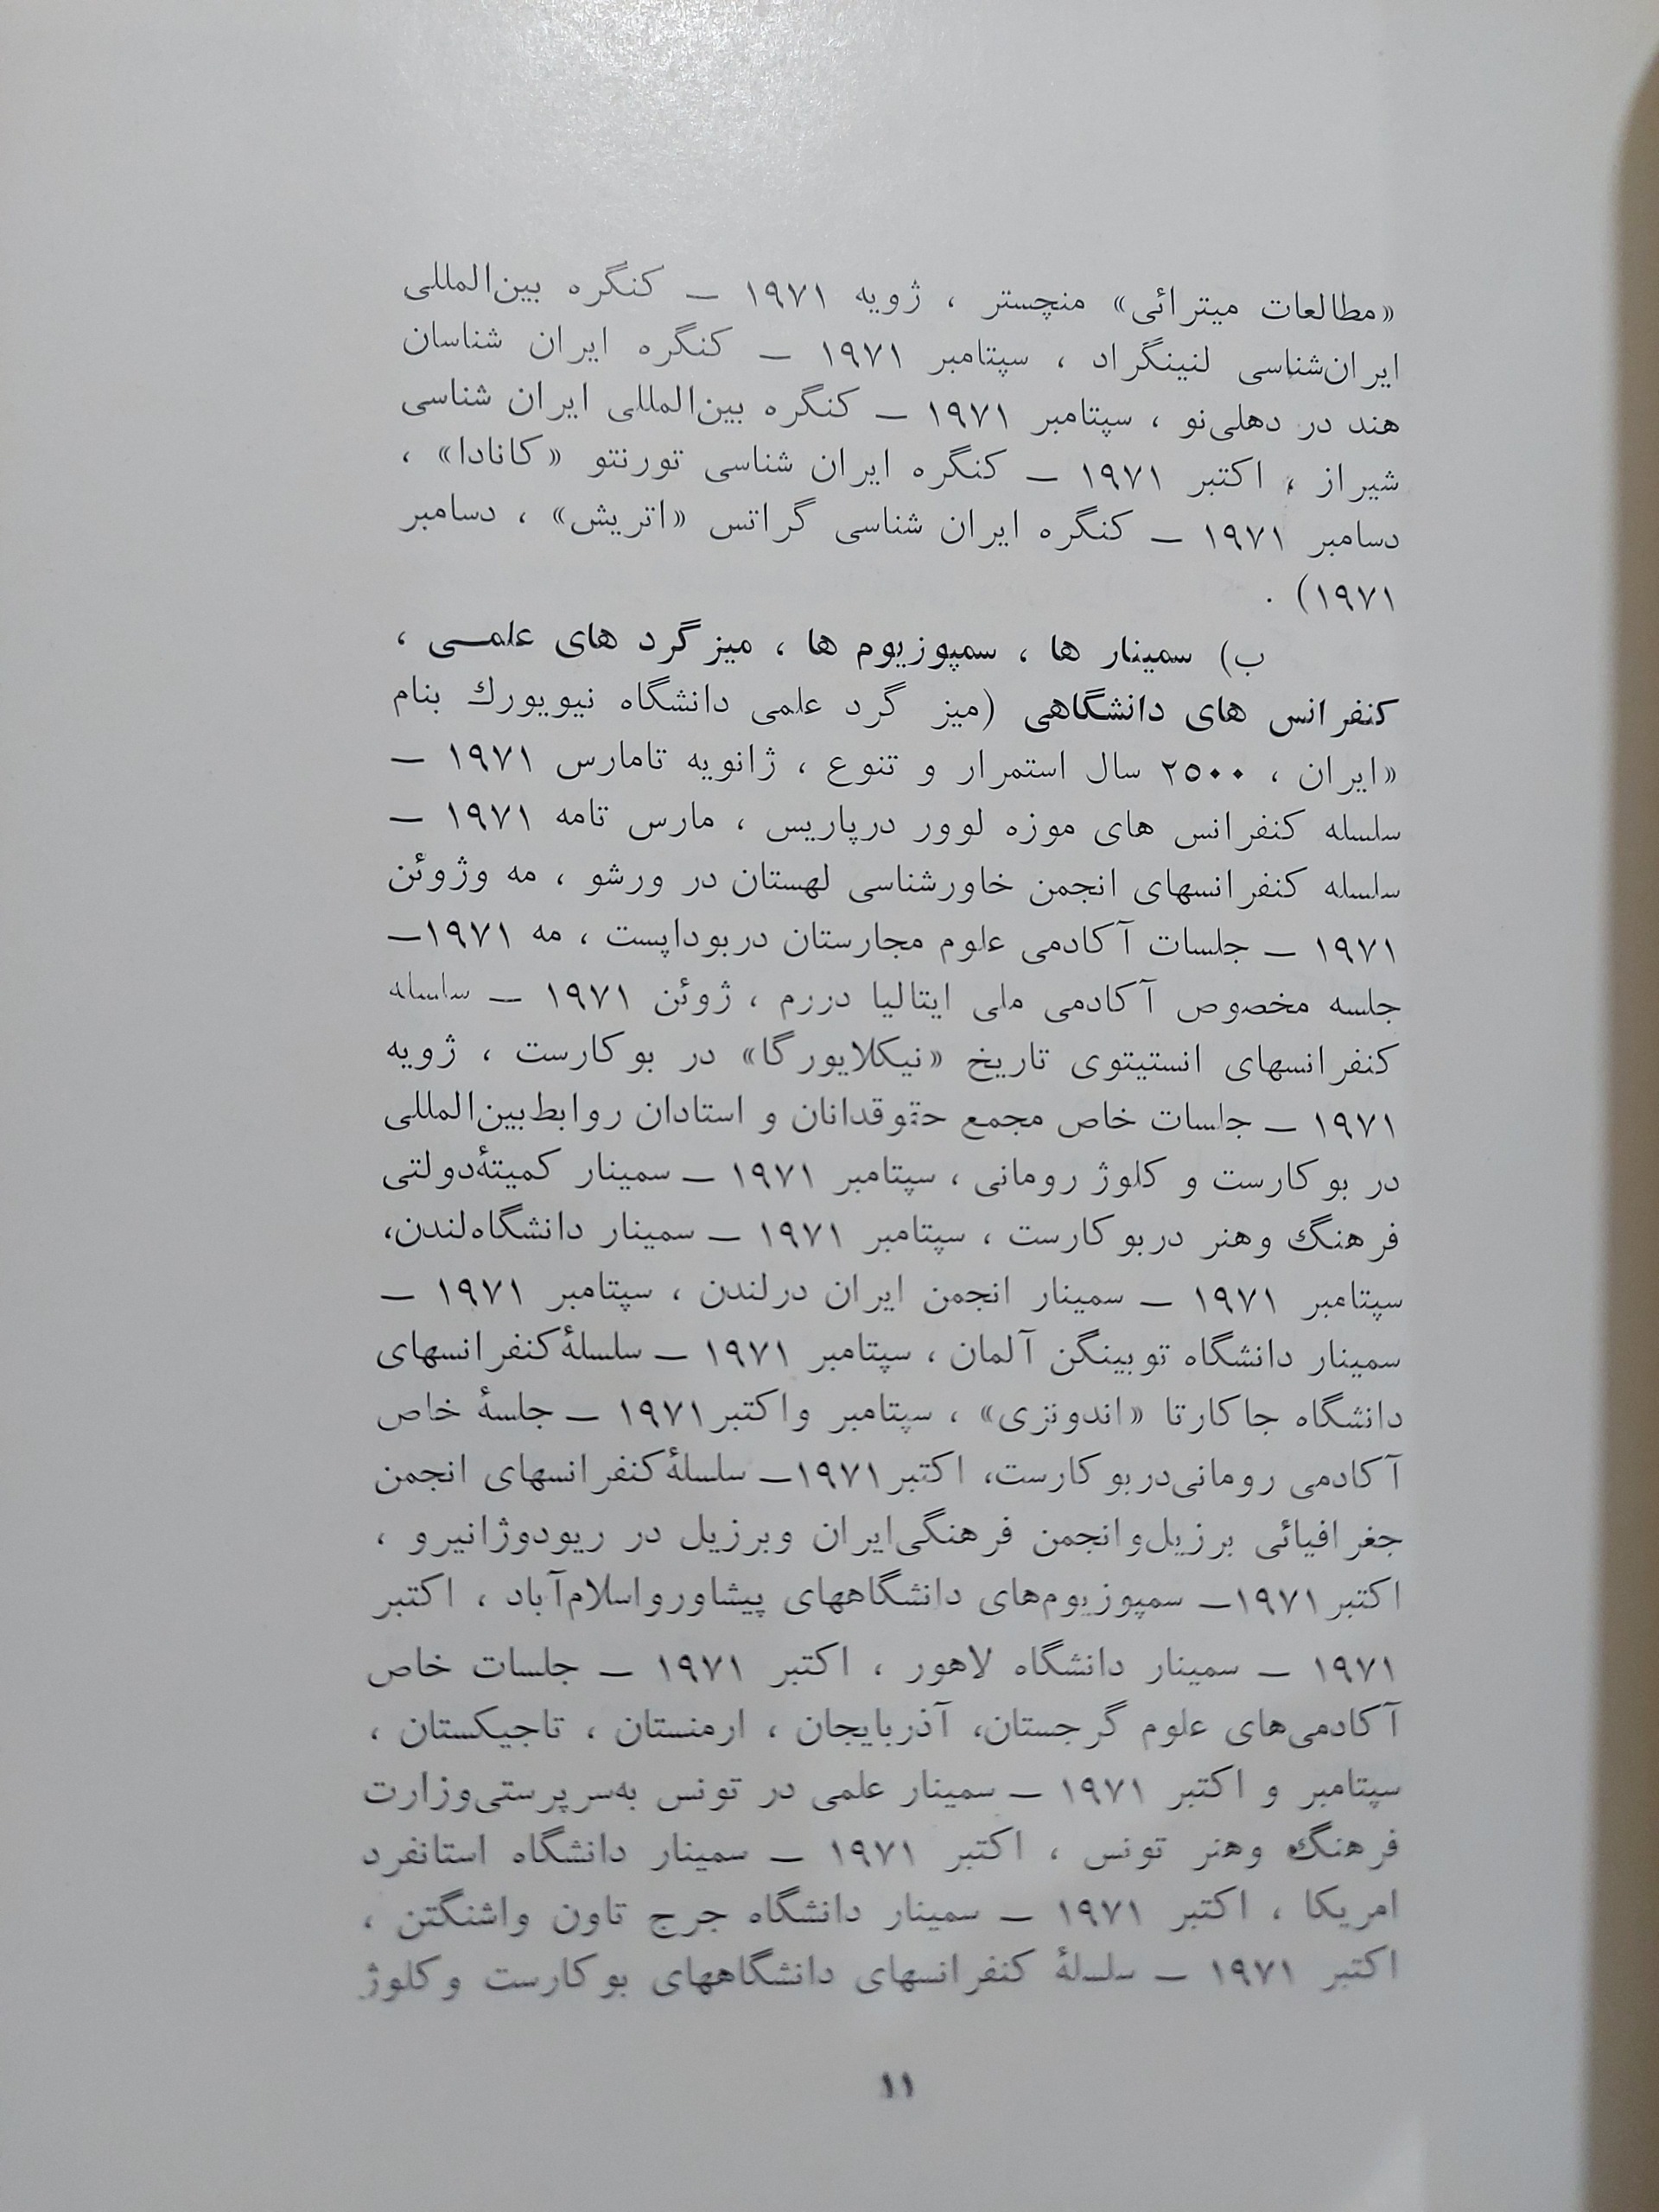 «مطالعات میترائی» منچستر ، ژویه ۱۹۷۱ ــ کنگره بین‌المللی
ایران‌شناسی لنینگراد ، سپتامبر ۱۹۷۱ ــ کنگره ایران شناسان
هند در دهلی‌نو ، سپتامبر ۱۹۷۱ ــ کنگره بین‌المللی ایران شناسی
شیراز ، اکتبر ۱۹۷۱ ــ کنگره ایران شناسی تورنتو «کانادا» ،
دسامبر ۱۹۷۱ ــ کنگره ایران شناسی گراتس «اتریش» ، دسامبر
۱۹۷۱) .
ب) سمینار ها ، سمپوزیوم ها ، میزگرد های علمی ،
کنفرانس های دانشگاهی (میز گرد علمی دانشگاه نیویورك بنام
«ایران ، ۲۵۰۰ سال استمرار و تنوع ، ژانویه تامارس ۱۹۷۱ ــ
سلسله کنفرانس های موزه لوور درپاریس ، مارس تامه ۱۹۷۱ ــ
سلسله کنفرانسهای انجمن خاورشناسی لهستان در ورشو ، مه وژوئن
۱۹۷۱ ــ جلسات آکادمی علوم مجارستان دربوداپست ، مه ۱۹۷۱ــ
جلسه مخصوص آکادمی ملی ایتالیا دررم ، ژوئن ۱۹۷۱ ــ سلسله
کنفرانسهای انستیتوی تاریخ «نیکلایورگا» در بوکارست ، ژویه
۱۹۷۱ ــ جلسات خاص مجمع حقوقدانان و استادان روابط‌بین‌المللی
در بوکارست و کلوژ رومانی ، سپتامبر ۱۹۷۱ ــ سمینار کمیتهٔ‌دولتی
فرهنگ وهنر دربوکارست ، سپتامبر ۱۹۷۱ ــ سمینار دانشگاه‌لندن،
سپتامبر ۱۹۷۱ ــ سمینار انجمن ایران درلندن ، سپتامبر ۱۹۷۱ ــ
سمینار دانشگاه توبینگن آلمان ، سپتامبر ۱۹۷۱ ــ سلسلهٔ کنفرانسهای
دانشگاه جاکارتا «اندونزی» ، سپتامبر واکتبر۱۹۷۱ ــ جلسهٔ خاص
آکادمی رومانی‌دربوکارست، اکتبر۱۹۷۱ــ سلسلهٔ کنفرانسهای انجمن
جغرافیائی برزیل‌وانجمن فرهنگی‌ایران وبرزیل در ریودوژانیرو ،
اکتبر۱۹۷۱ــ سمپوزیوم‌های دانشگاههای پیشاورواسلام‌آباد ، اکتبر
۱۹۷۱ ــ سمینار دانشگاه لاهور ، اکتبر ۱۹۷۱ ــ جلسات خاص
آکادمی‌های علوم گرجستان، آذربایجان ، ارمنستان ، تاجیکستان ،
سپتامبر و اکتبر ۱۹۷۱ ــ سمینار علمی در تونس به‌سرپرستی‌وزارت
فرهنگ وهنر تونس ، اکتبر ۱۹۷۱ ــ سمینار دانشگاه استانفرد
امریکا ، اکتبر ۱۹۷۱ ــ سمینار دانشگاه جرج تاون واشنگتن ،
اکتبر ۱۹۷۱ ــ سلسلهٔ کنفرانسهای دانشگاههای بوکارست وکلوژ
۱۱